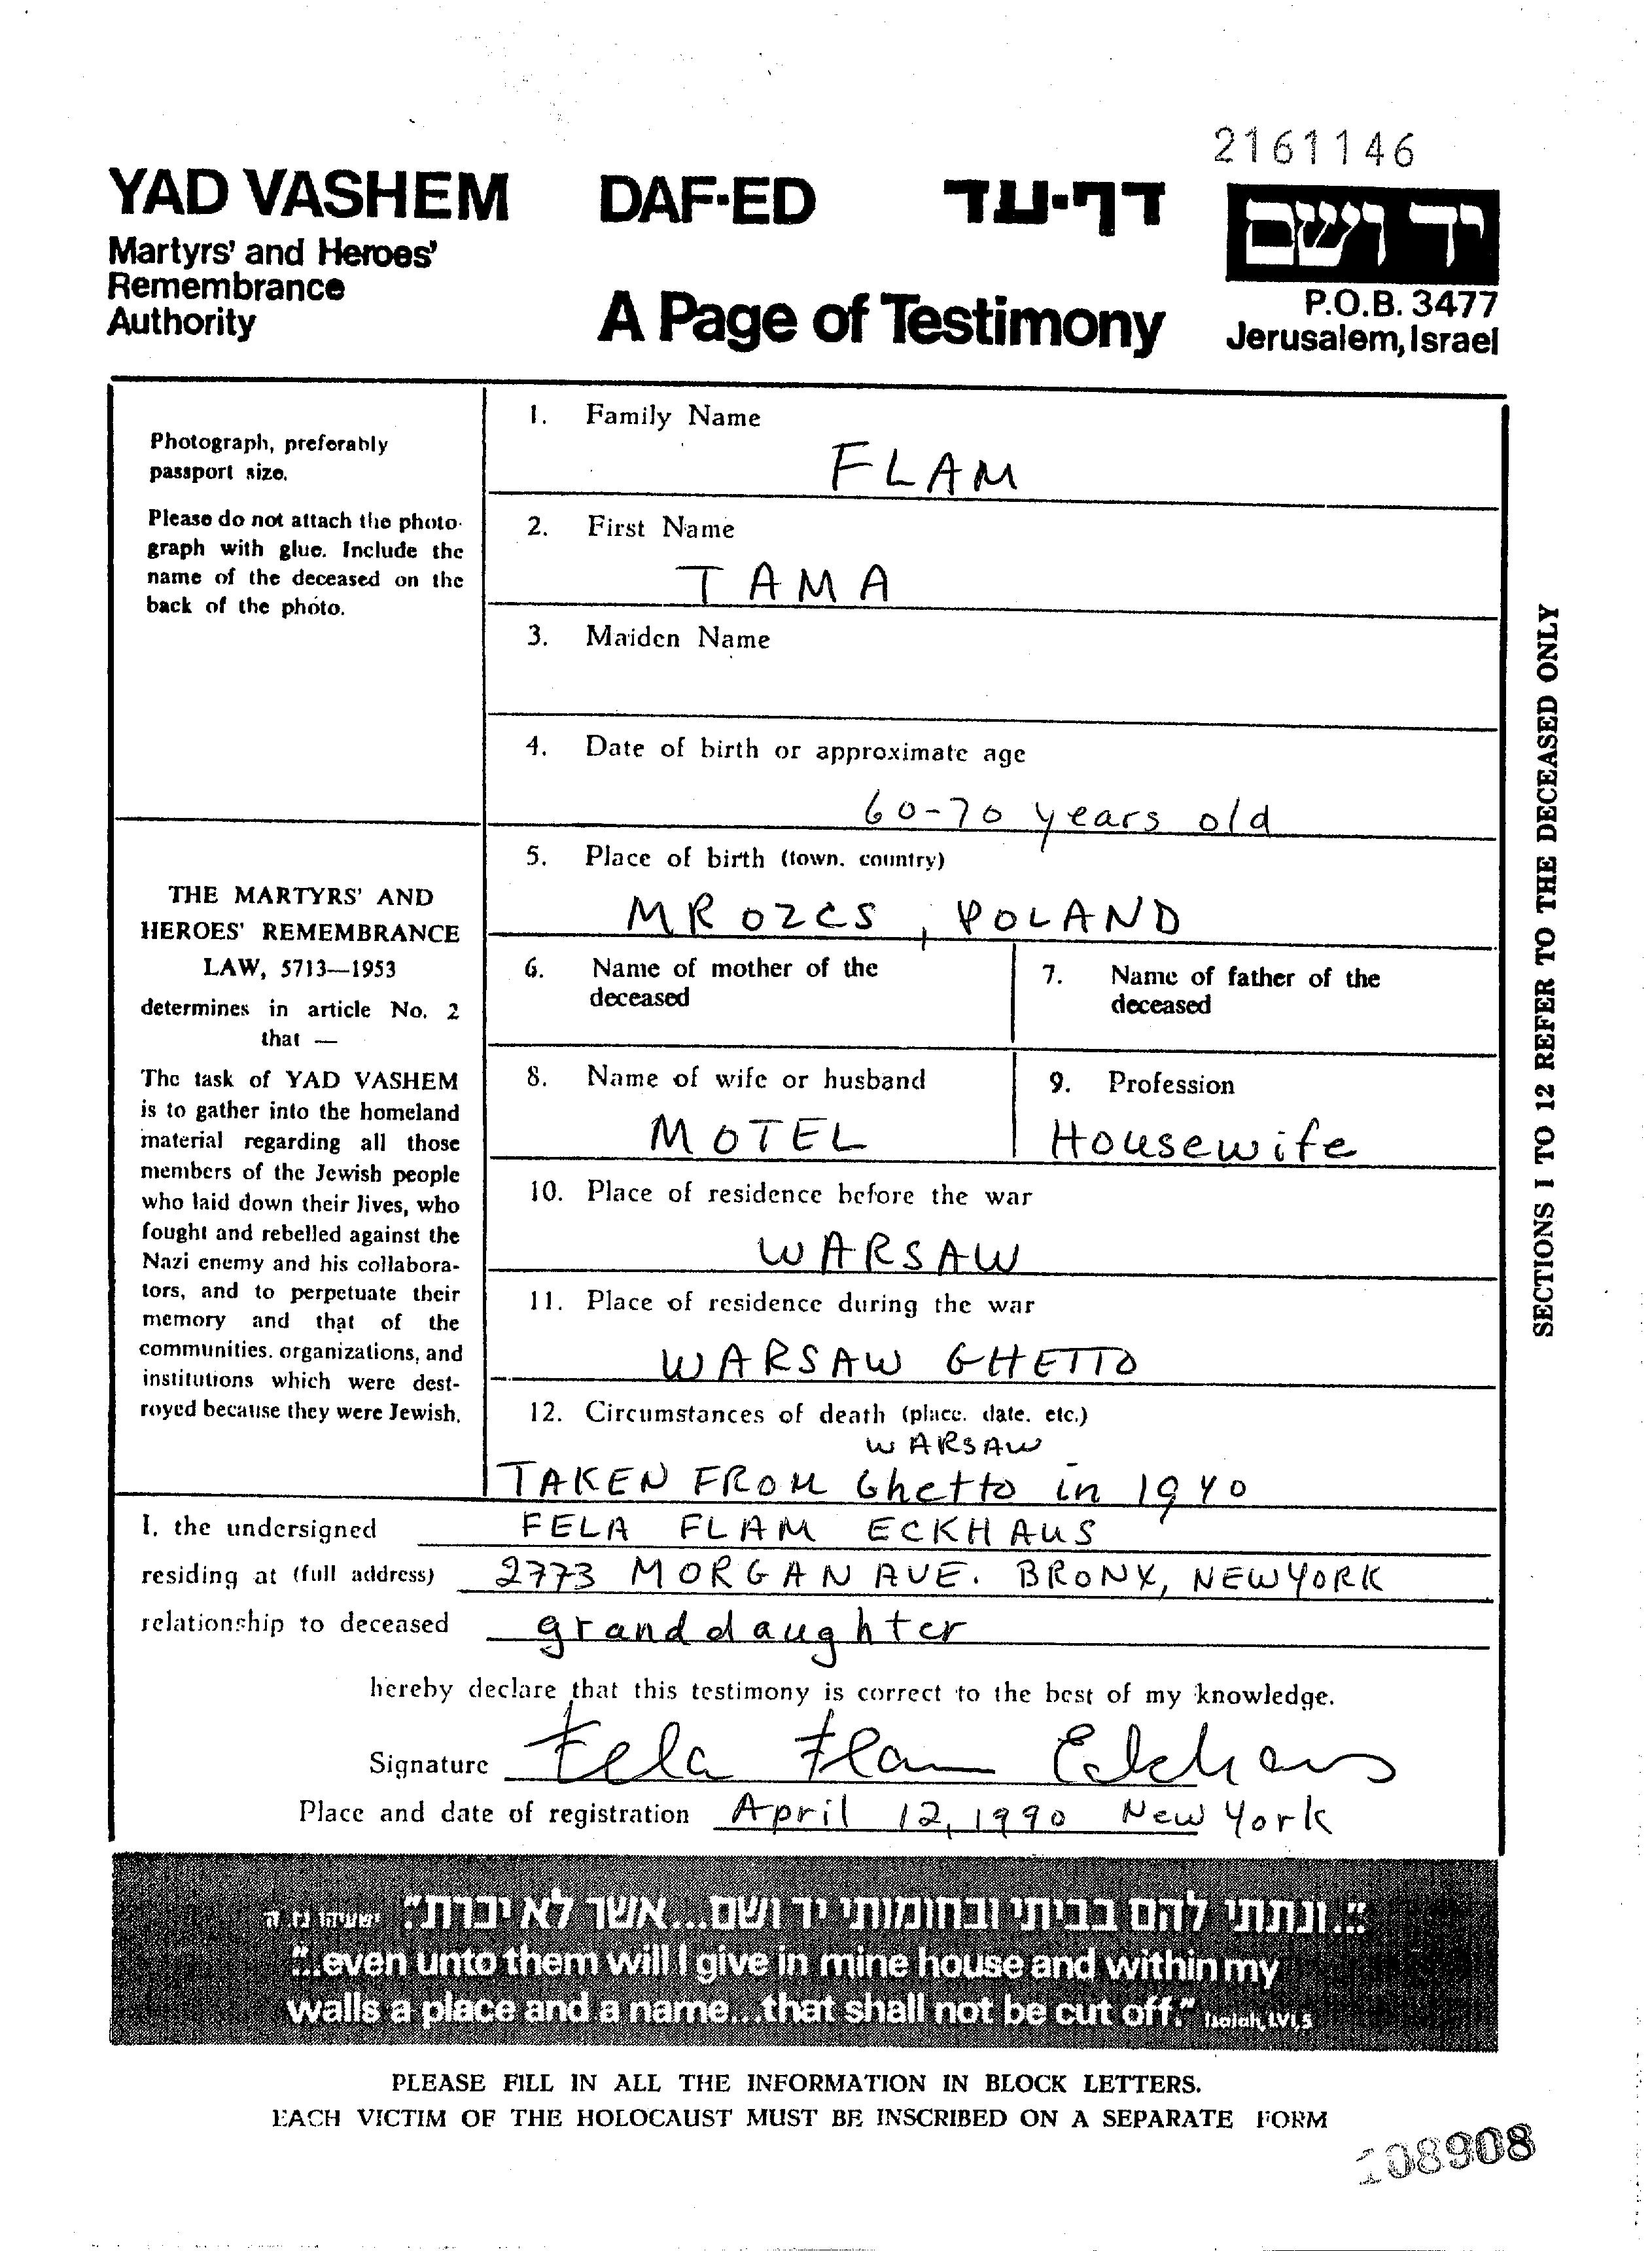 2161146
YAD VASHEM DAF-ED דף-עד יד ושם
Martyrs' and Heroes'
Remembrance
Authority
A Page of Testimony
P.O.B. 3477
Jerusalem, Israel
Photograph, preferably
passport size.
Please do not attach the photo-
graph with glue. Include the
name of the deceased on the
back of the photo.
THE MARTYRS' AND
HEROES' REMEMBRANCE
LAW, 5713—1953
determines in article No. 2
that —
The task of YAD VASHEM
is to gather into the homeland
material regarding all those
members of the Jewish people
who laid down their lives, who
fought and rebelled against the
Nazi enemy and his collabora-
tors, and to perpetuate their
memory and that of the
communities, organizations, and
institutions which were dest-
royed because they were Jewish.
1. Family Name
FLAM
2. First Name
TAMA
3. Maiden Name
4. Date of birth or approximate age
60-70 years old
5. Place of birth (town, country)
MROZCS, POLAND
6. Name of mother of the
deceased
7. Name of father of the
deceased
8. Name of wife or husband
MOTEL
9. Profession
Housewife
10. Place of residence before the war
WARSAW
11. Place of residence during the war
WARSAW GHETTO
12. Circumstances of death (place, date, etc.)
WARSAW
TAKEN FROM Ghetto in 1940
SECTIONS 1 TO 12 REFER TO THE DECEASED ONLY
I, the undersigned FELA FLAM ECKHAUS
residing at (full address) 2773 MORGAN AVE. BRONX, NEW YORK
relationship to deceased granddaughter
hereby declare that this testimony is correct to the best of my knowledge.
Signature Fela Flam Eckhaus
Place and date of registration April 12, 1990 New York
"...ונתתי להם בביתי ובחומותי יד ושם...אשר לא יכרת." ישעיהו נו, ה
"...even unto them will I give in mine house and within my
walls a place and a name...that shall not be cut off." Isaiah, LVI, 5
PLEASE FILL IN ALL THE INFORMATION IN BLOCK LETTERS.
EACH VICTIM OF THE HOLOCAUST MUST BE INSCRIBED ON A SEPARATE FORM
108908